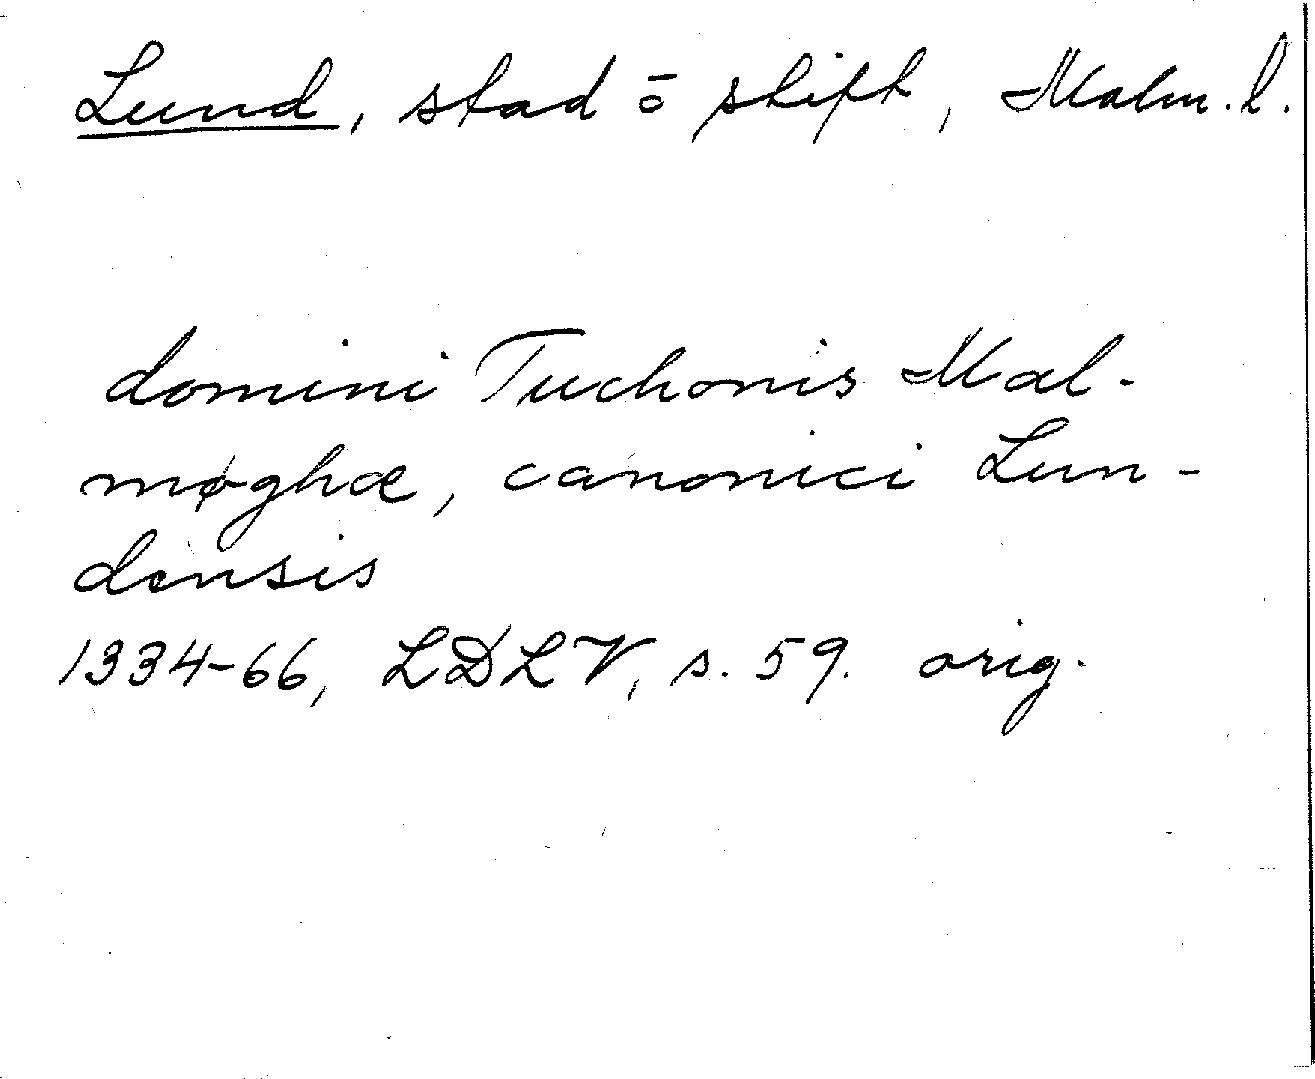 Lund, stad ō stift, Malm. l.
domini Tuchonis Mal-
møghæ, canonici Lun-
densis
1334-66, LDLV, s. 59. orig.